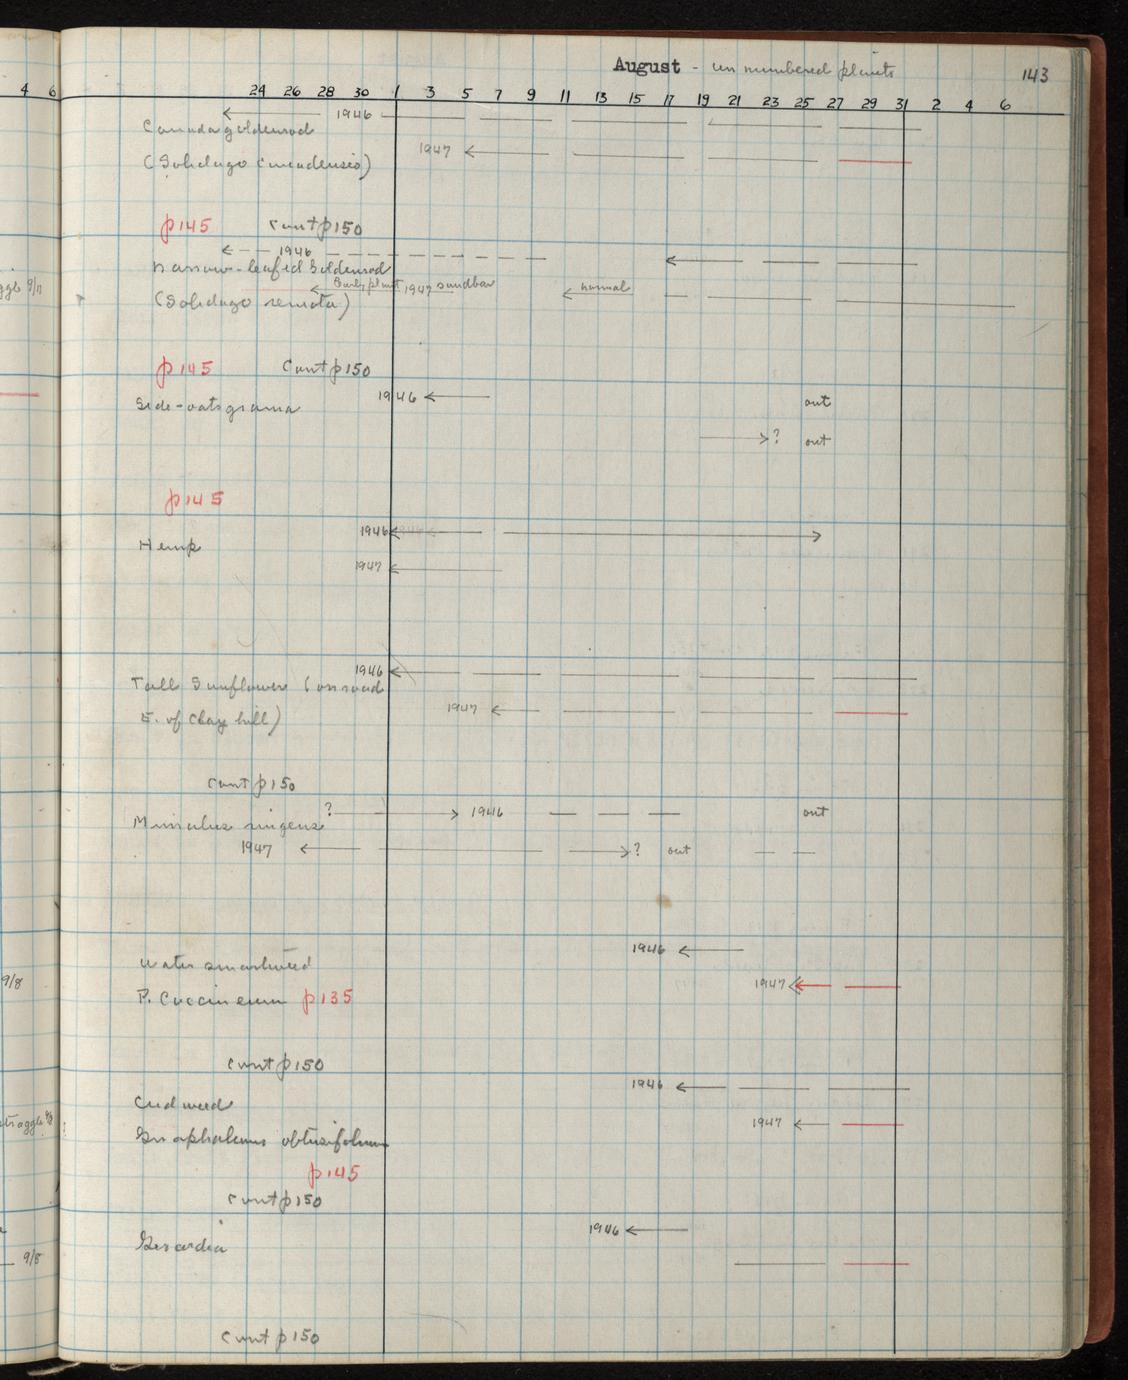 August - un numbered plants 143
4 6 24 26 28 30 1 3 5 7 9 11 13 15 17 19 21 23 25 27 29 31 2 4 6
1946
Canada goldenrod
1947
(Solidago canadensis)
p145 Cont p150
1946
Narrow-leafed Goldenrod
Early plant 1947 sandbar normal
9/11
(Solidago remota)
p145 Cont p150
1946 out
Side-oats grama
? out
p145
1946 1946
Hemp
1947
1946
Tall Sunflower (on road
1947
E. of Clay hill)
Cont p150
? 1946 out
Mimulus ringens
1947 ? out
1946
Water smartweed
9/8 1947
P. Coccineum p135
Cont p150
1946
Cudweed
1947
Gnaphalium obtusifolium
p145
Cont p150
1946
Gerardia
9/8
Cont p150